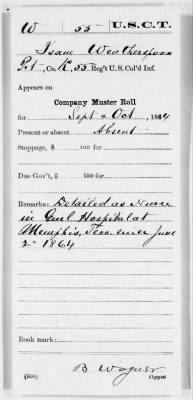 W 55 U.S.C.T.
Isaac Weatherspoon
Pvt, Co. K, 55 Reg't U.S. Col'd Inf.
Appears on
Company Muster Roll
for Sept & Oct, 1864
Present or absent Absent
Stoppage, $ 100 for
Due Gov't, $ 100 for
Remarks: Detailed as Nurse
in Genl Hospital at
Memphis, Tenn since June
2" 1864
Book mark:
B Wagner
(358) Copyist.